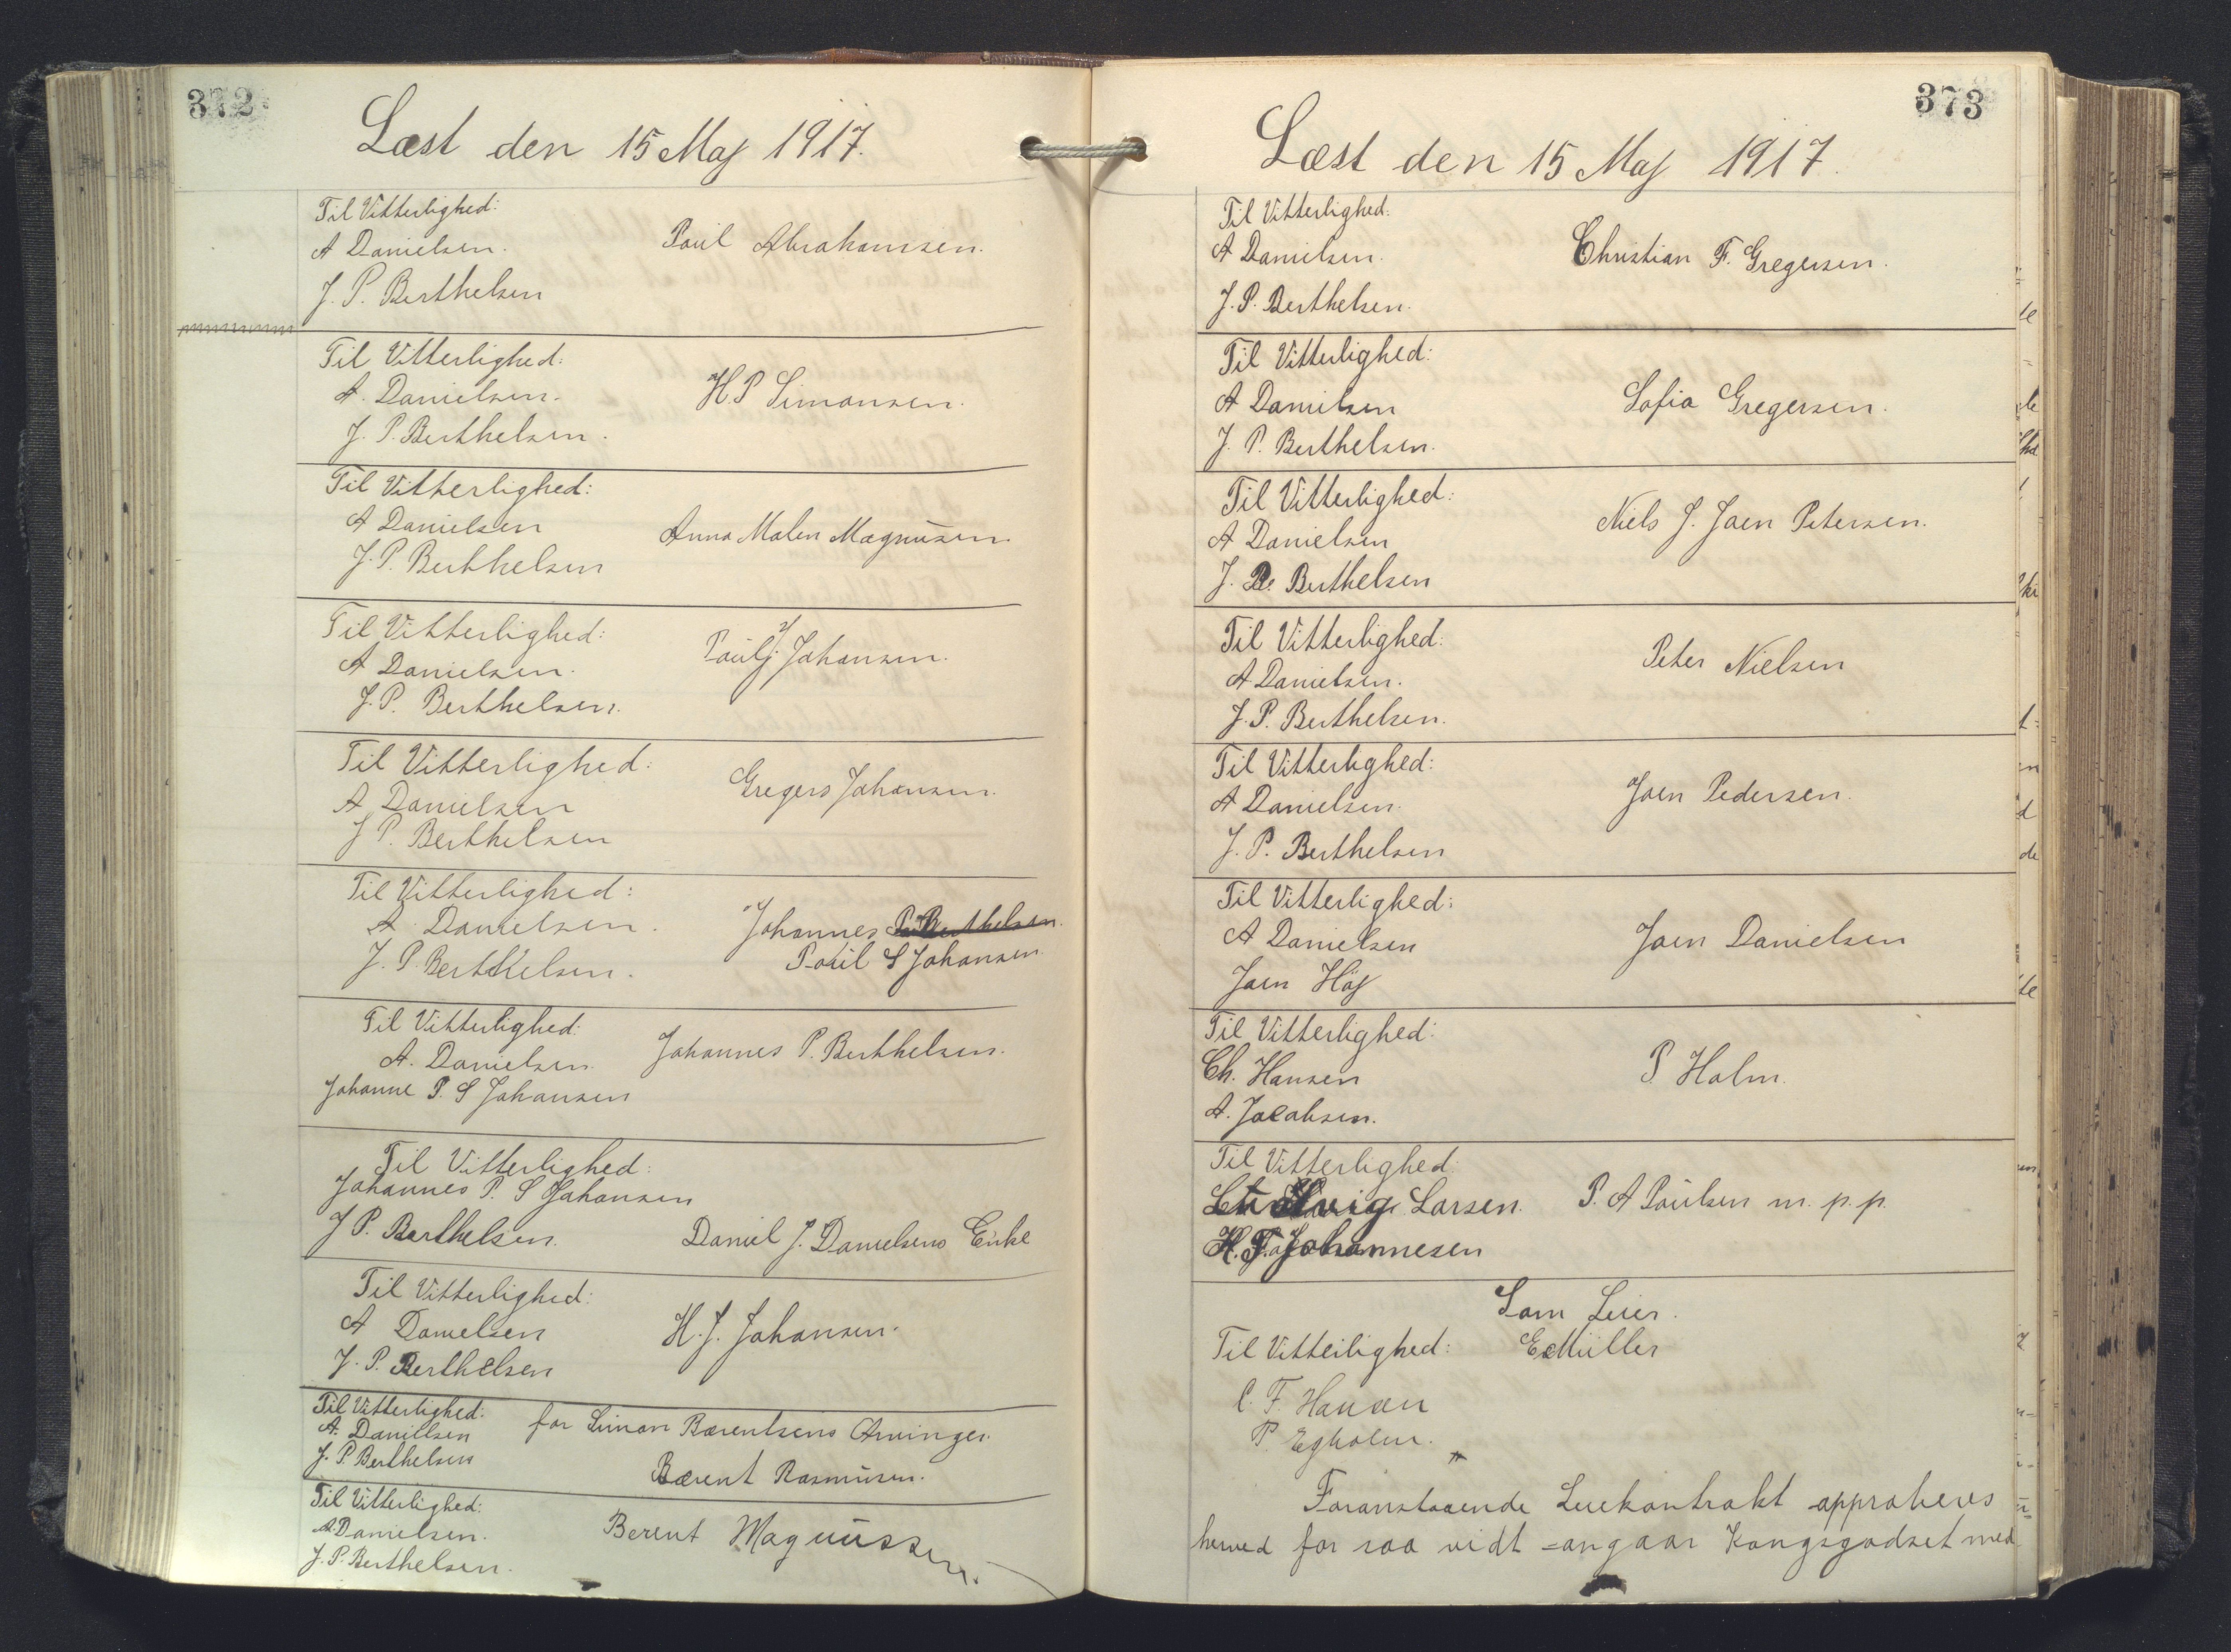 372
Læst den 15 Maj 1917.
Til Vitterlighed:
A Danielsen.
Poul Abrahamsen.
J. P. Berthelsen
Til Vitterlighed:
A. Danielsen.
H. P Simonsen.
J. P. Berthelsen.
Til Vitterlighed:
A Danielsen
Anna Malen Magnusen.
J. P. Berthelsen
Til Vitterlighed:
A Danielsen.
Poul J. Johansen.
J. P. Berthelsen.
Til Vitterlighed:
A Danielsen
Gregers Johansen.
J P. Berthelsen
Til Vitterlighed:
A Danielsen.
Johannes
J. P. Berthelsen.
Poul S Johansen.
Til Vitterlighed:
A. Danielsen.
Johannes P. Berthelsen.
Johanne P. S Johansen
Til Vitterlighed:
Johannes P. S Johansen
J P. Berthelsen.
Daniel J. Danielsens Enke
Til Vitterlighed:
A Danielsen
H. J. Johansen.
J. P. Berthelsen
Til Vitterlighed.
A. Danielsen
for Simon Bærentsens Arvinger.
J. P Berthelsen
Bærent Rasmusen.
Til Vitterlighed:
A. Danielsen.
Berent Magnussen.
J. P. Berthelsen.
373
Læst den 15 Maj 1917.
Til Vitterlighed:
A Danielsen.
Christian F. Gregersen.
J. P. Berthelsen.
Til Vitterlighed:
A Danielsen
Sofia Gregersen.
J. P. Berthelsen.
Til Vitterlighed:
A Danielsen
Niels J. Joen Petersen.
J. P. Berthelsen
Til Vitterlighed:
A Danielsen.
Peter Nielsen
J. P. Berthelsen.
Til Vitterlighed:
A Danielsen.
Joen Pedersen.
J. P. Berthelsen
Til Vitterlighed:
A Danielsen
Joen Danielsen
Joen Høj
Til Vitterlighed:
Ch. Hansen
P Holm.
A. Jacobsen.
Til Vitterlighed:
Larsen.
P. A Poulsen m. p. p.
H. F. Johannesen
Som Leier.
Til Vitterlighed:
E Müller
C. F. Hansen
P. Egholm.
Foranstaaende Leiekontrakt approberes
herved for saa vidt angaar Kongsgodset med